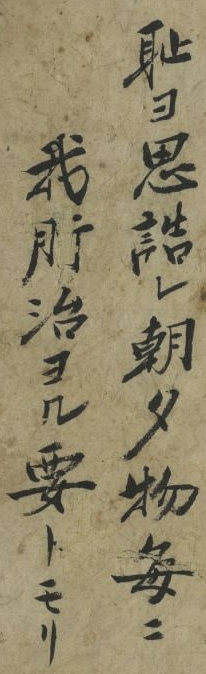 耻ヨ思詰レ朝夕物毎ニ
我肝治ヨル要トモリ